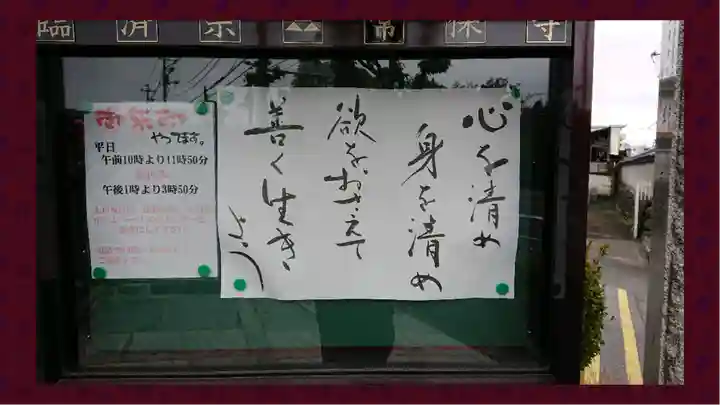 臨済宗 常保寺
心を清め
身を清め
欲をおさえて
善く生き
よう
御朱印
やってます。
平日
午前10時より11時50分
午後1時より3時50分